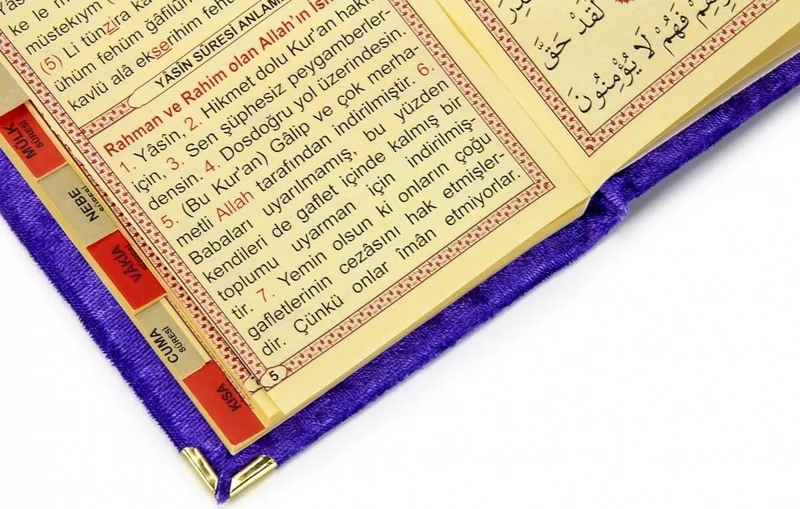 ke le m
müstekıym
(5) Li tünzira k
ühüm fehüm ğâfilûn
kavlü alâ ekserihim fehü
YÂSÎN SÛRESİ ANLAMI
Rahman ve Rahim olan Allah'ın is
1. Yâsîn, 2. Hikmet dolu Kur'an hakk
için, 3. Sen şüphesiz peygamberler-
densin. 4. Dosdoğru yol üzerindesin.
5. (Bu Kur'an) Gâlip ve çok merha-
metli Allah tarafından indirilmiştir 6.
Babaları uyarılmamış, bu yüzden
kendileri de gaflet içinde kalmış bir
toplumu uyarman için indirilmiş-
tir. 7. Yemin olsun ki onların çoğu
gafletlerinin cezâsını hak etmişler-
dir. Çünkü onlar îmân etmiyorlar.
5
MÜLK
SÛRESİ
NEBE
SÛRESİ
VÂKIA
CUMA
SÛRESİ
KISA
لَقَدْ حَقَّ
فَهُمْ لَا يُؤْمِنُونَ